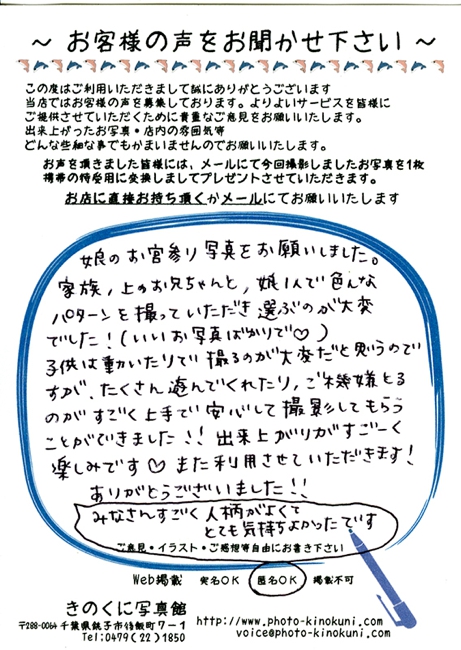 ～ お客様の声をお聞かせ下さい ～
この度はご利用いただきまして誠にありがとうございます
当店ではお客様の声を募集しております。よりよいサービスを皆様に
ご提供させていただくために貴重なご意見をお願いいたします。
出来上がったお写真・店内の雰囲気等
どんな些細な事でもかまいませんのでお願いいたします。
お声を頂きました皆様には、メールにて今回撮影しましたお写真を1枚
携帯の待受用に変換しましてプレゼントさせていただきます。
お店に直接お持ち頂くかメールにてお願いいたします
娘のお宮参り写真をお願いしました。
家族，上のお兄ちゃんと，娘1人で色んな
パターンを撮っていただき選ぶのが大変
でした！（いいお写真ばかりで♡）
子供は動いたりで撮るのが大変だと思うので
すが、たくさん遊んでくれたり，ご機嫌とる
のがすごく上手で安心して撮影してもらう
ことができました！！出来上がりがすごーく
楽しみです♡また利用させていただきます！
ありがとうございました！！
みなさんすごく人柄がよくて
とても気持ちよかったです
ご意見・イラスト・ご感想等自由にお書き下さい
Web掲載 実名OK 匿名OK 掲載不可
きのくに写真館
〒288-0064 千葉県銚子市後飯町7-1
Tel:0479(22)1850
http://www.photo-kinokuni.com/
voice@photo-kinokuni.com